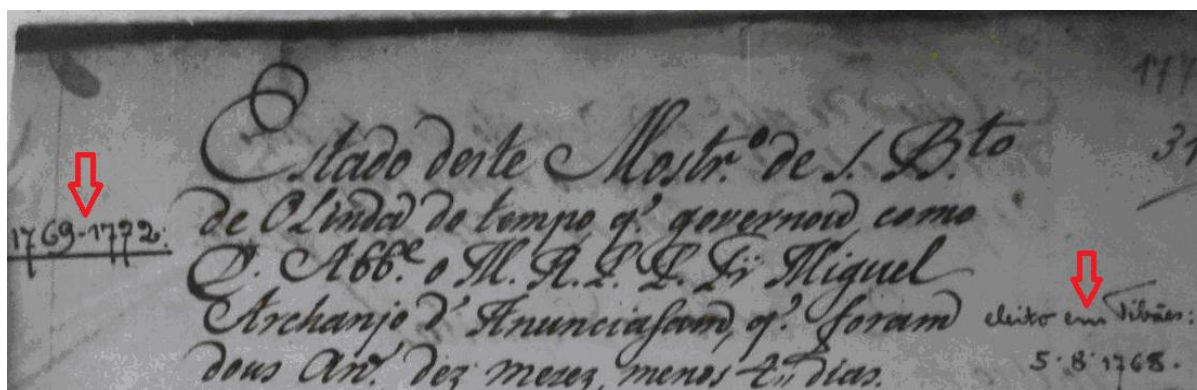 Estado deste Mostr.º de S. B.to
de Olinda do tempo q'. governou como
D. Abb.e o M. R. P. P. Fr. Miguel
Archanjo d' Anunciasam, q'. foram
dous An.' dez mezez, menos dias.
1769-1772.
eleito em Tibães:
5.8.1768.